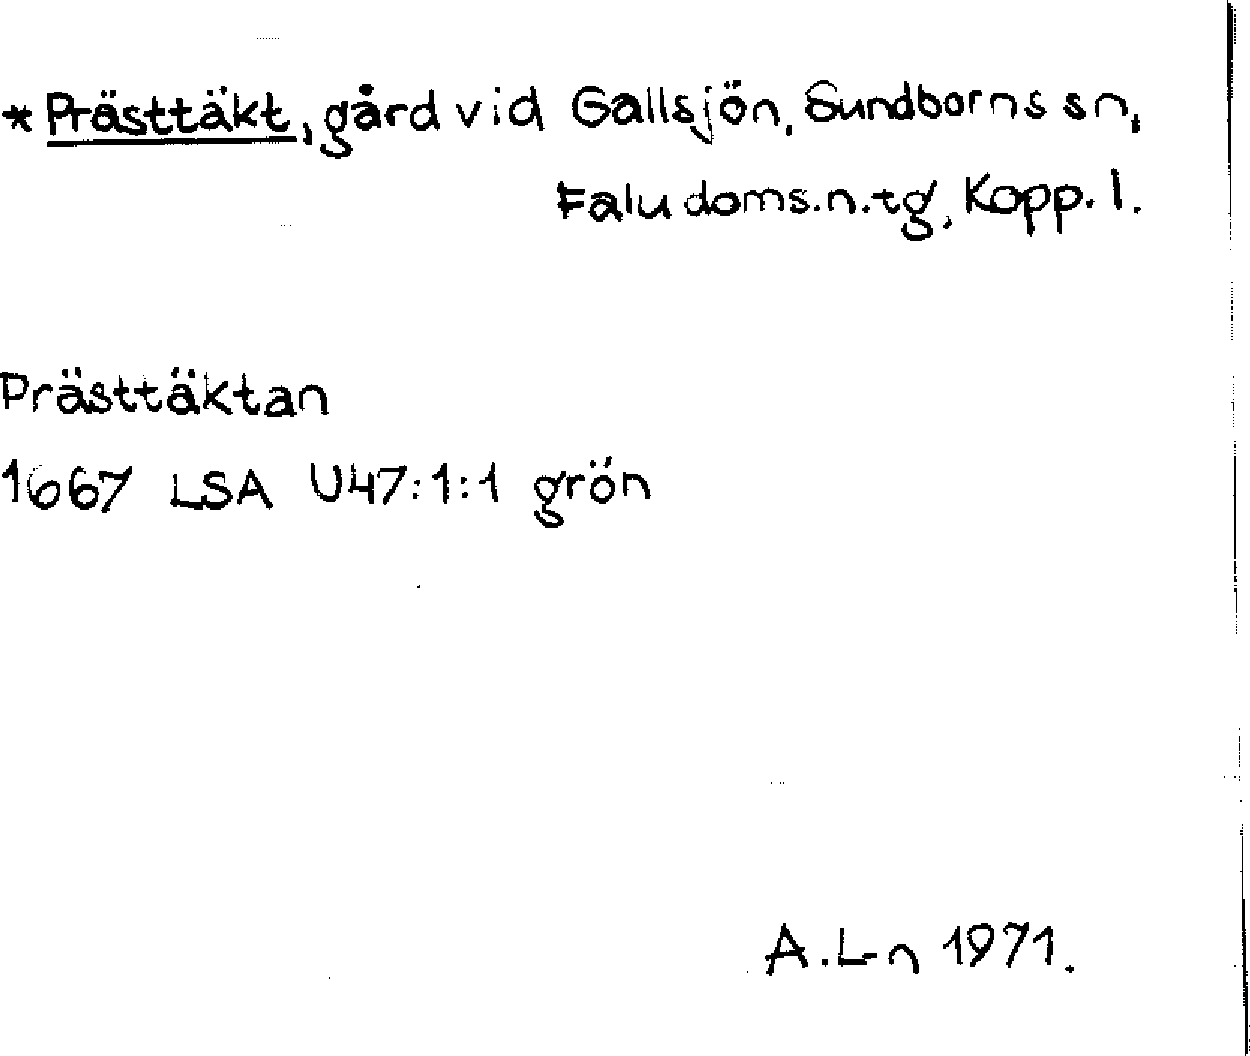 * Prästtäkt, gård vid Gallsjön, Sundborns sn,
Falu doms.n.tg, Kopp. l.
Prästtäktan
1667 LSA U47:1:1 grön
A.L-n 1971.